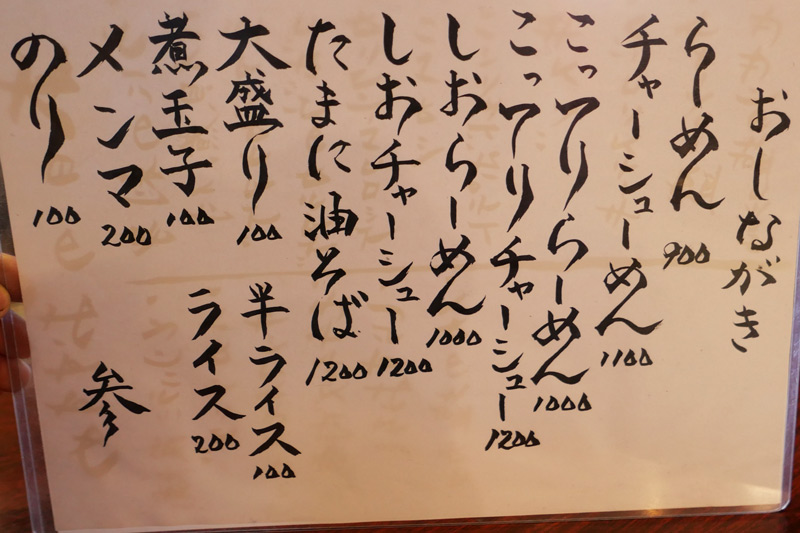 おしながき
らーめん 900
チャーシューめん 1100
こってりらーめん 1000
こってりチャーシュー 1200
しおらーめん 1000
しおチャーシュー 1200
たまに油そば 1200
大盛り 100
半ライス 100
煮玉子 100
ライス 200
メンマ 200
のり 100
参